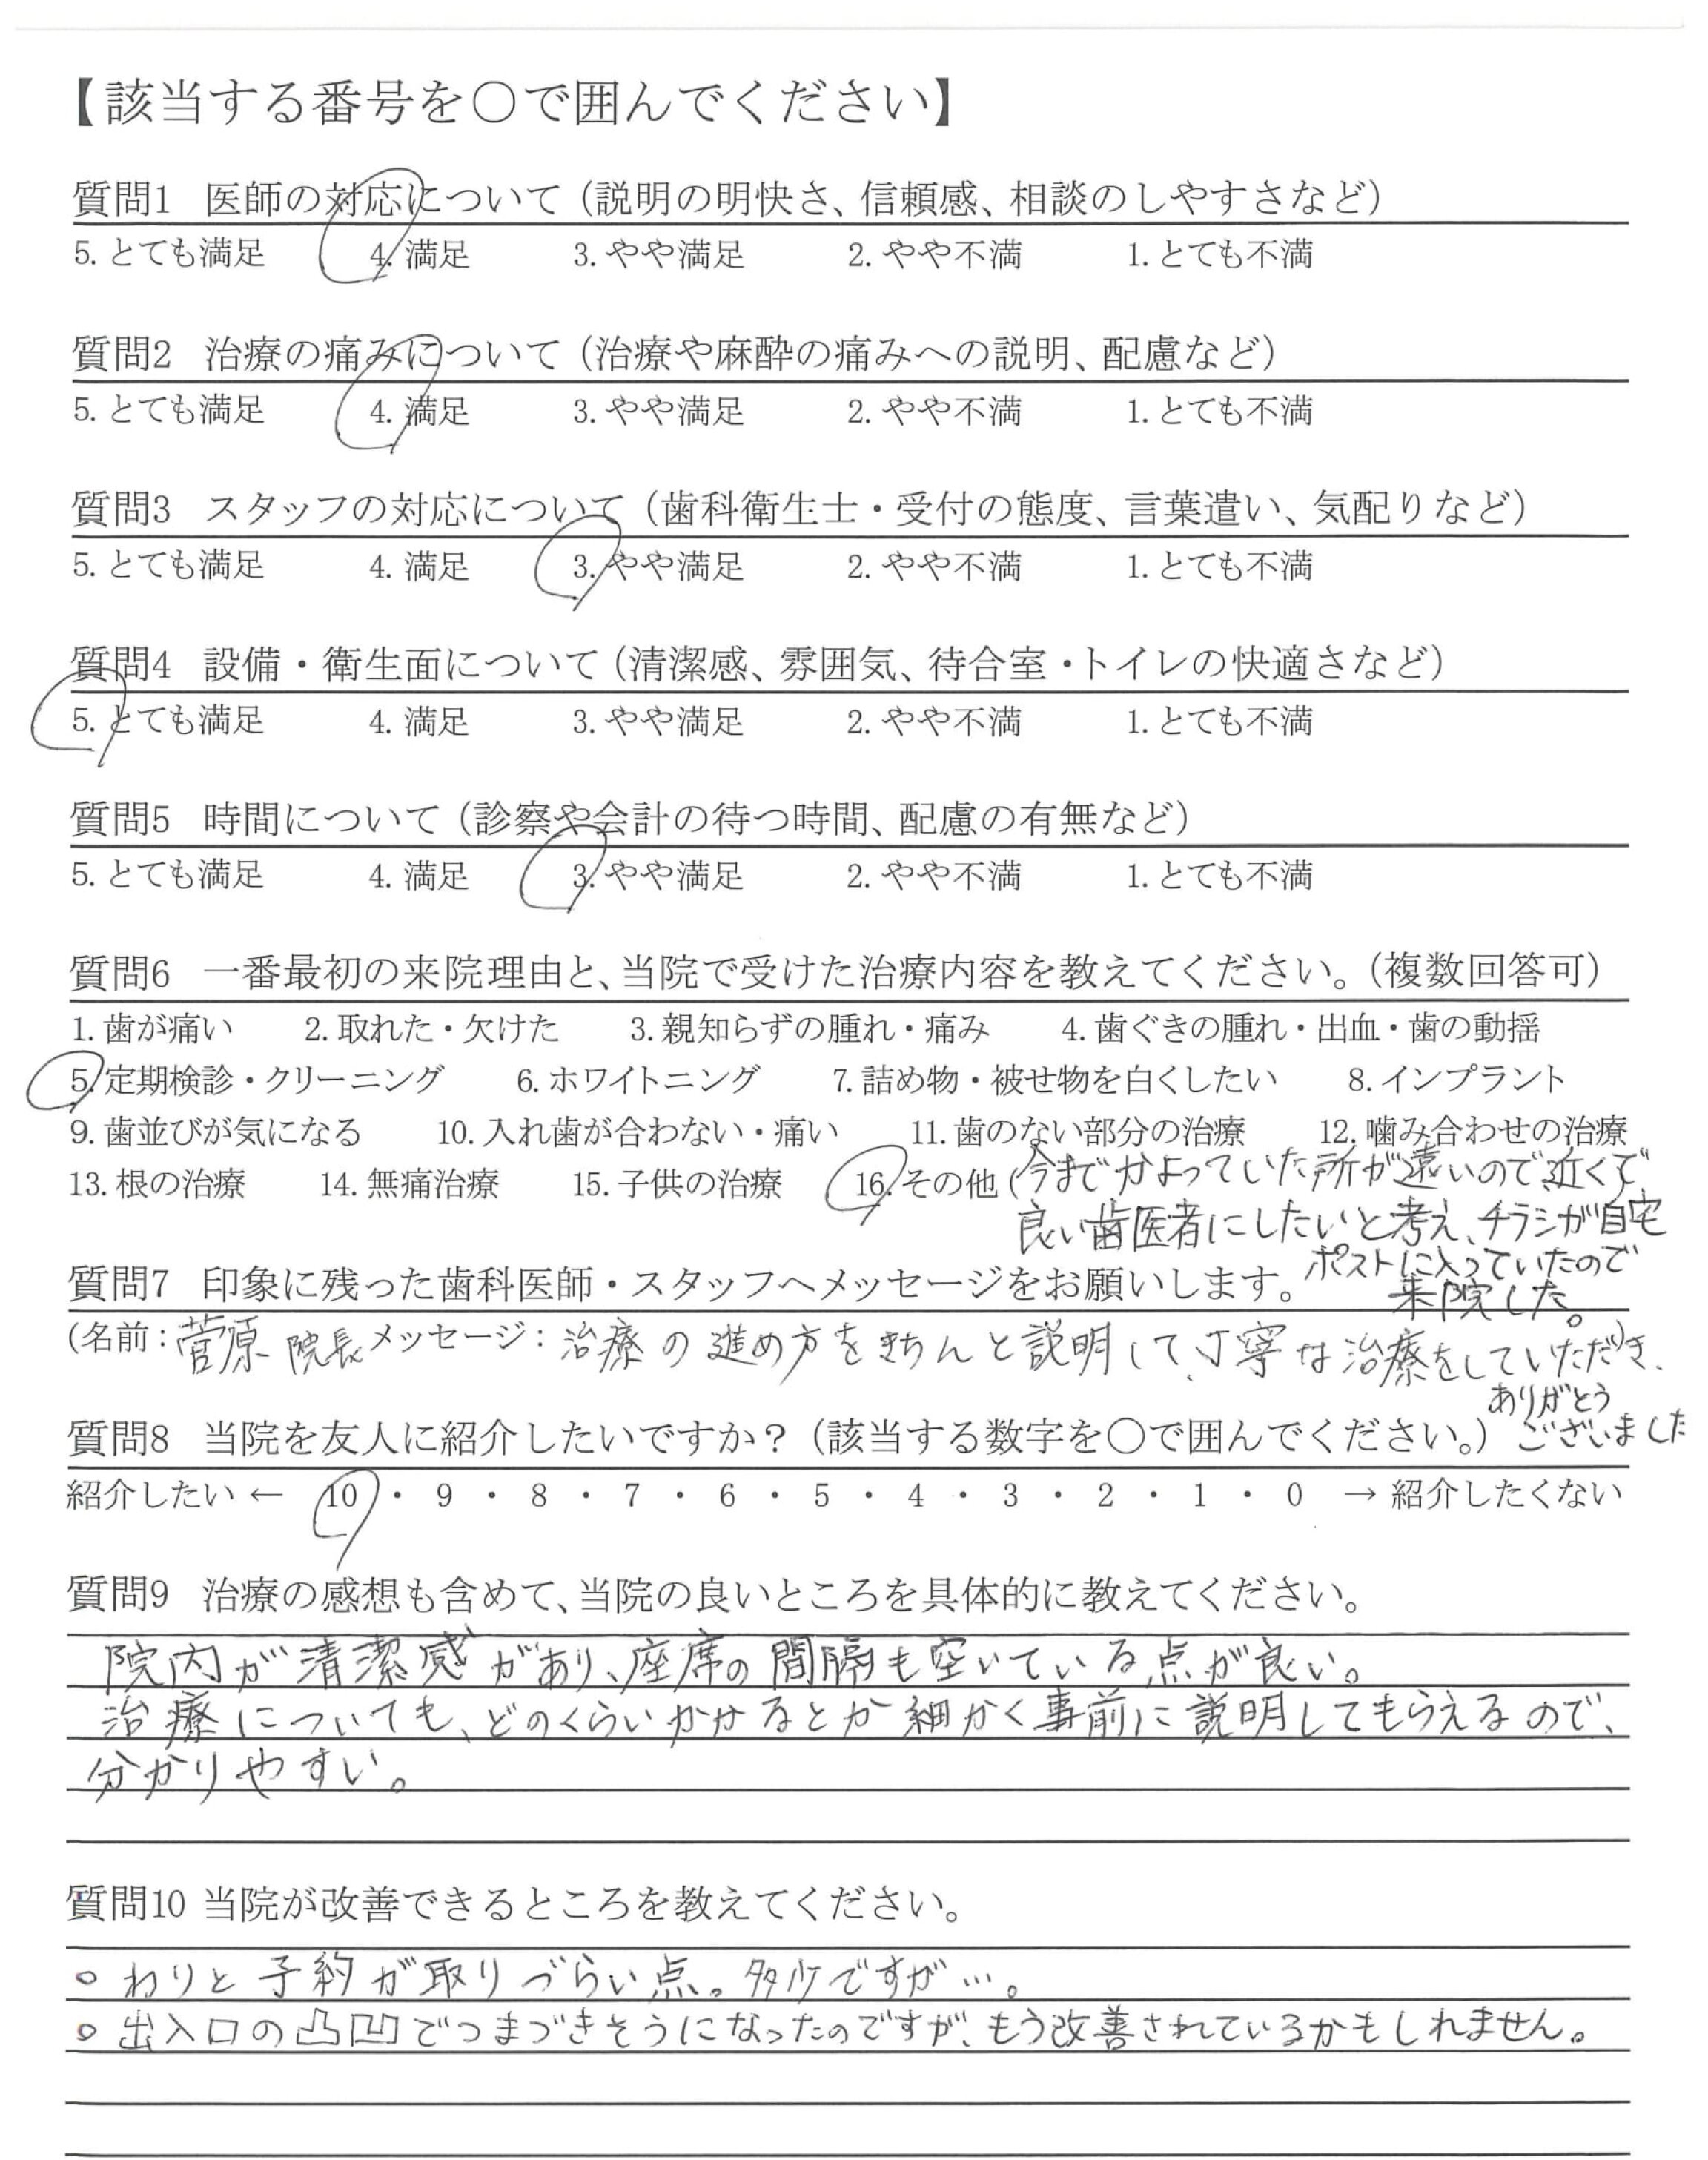 【該当する番号を〇で囲んでください】
質問1 医師の対応について（説明の明快さ、信頼感、相談のしやすさなど）
5. とても満足 4. 満足 3. やや満足 2. やや不満 1. とても不満
質問2 治療の痛みについて（治療や麻酔の痛みへの説明、配慮など）
5. とても満足 4. 満足 3. やや満足 2. やや不満 1. とても不満
質問3 スタッフの対応について（歯科衛生士・受付の態度、言葉遣い、気配りなど）
5. とても満足 4. 満足 3. やや満足 2. やや不満 1. とても不満
質問4 設備・衛生面について（清潔感、雰囲気、待合室・トイレの快適さなど）
5. とても満足 4. 満足 3. やや満足 2. やや不満 1. とても不満
質問5 時間について（診察や会計の待つ時間、配慮の有無など）
5. とても満足 4. 満足 3. やや満足 2. やや不満 1. とても不満
質問6 一番最初の来院理由と、当院で受けた治療内容を教えてください。（複数回答可）
1. 歯が痛い 2. 取れた・欠けた 3. 親知らずの腫れ・痛み 4. 歯ぐきの腫れ・出血・歯の動揺
5. 定期検診・クリーニング 6. ホワイトニング 7. 詰め物・被せ物を白くしたい 8. インプラント
9. 歯並びが気になる 10. 入れ歯が合わない・痛い 11. 歯のない部分の治療 12. 噛み合わせの治療
13. 根の治療 14. 無痛治療 15. 子供の治療 16. その他（今までかよっていた所が遠いので、近くで
良い歯医者にしたいと考え、チラシが自宅
ポストに入っていたので
来院した。
質問7 印象に残った歯科医師・スタッフへメッセージをお願いします。
（名前：菅原 院長 メッセージ：治療の進め方をきちんと説明して、丁寧な治療をしていただき、）
ありがとう
ございました
質問8 当院を友人に紹介したいですか？（該当する数字を〇で囲んでください。）
紹介したい ← 10 ・ 9 ・ 8 ・ 7 ・ 6 ・ 5 ・ 4 ・ 3 ・ 2 ・ 1 ・ 0 → 紹介したくない
質問9 治療の感想も含めて、当院の良いところを具体的に教えてください。
院内が清潔感があり、座席の間隔も空いている点が良い。
治療についても、どのくらいかけるとか細かく事前に説明してもらえるので、
分かりやすい。
質問10 当院が改善できるところを教えてください。
○ わりと予約が取りづらい点。多少ですが…。
○ 出入口の凸凹でつまづきそうになったのですが、もう改善されているかもしれません。